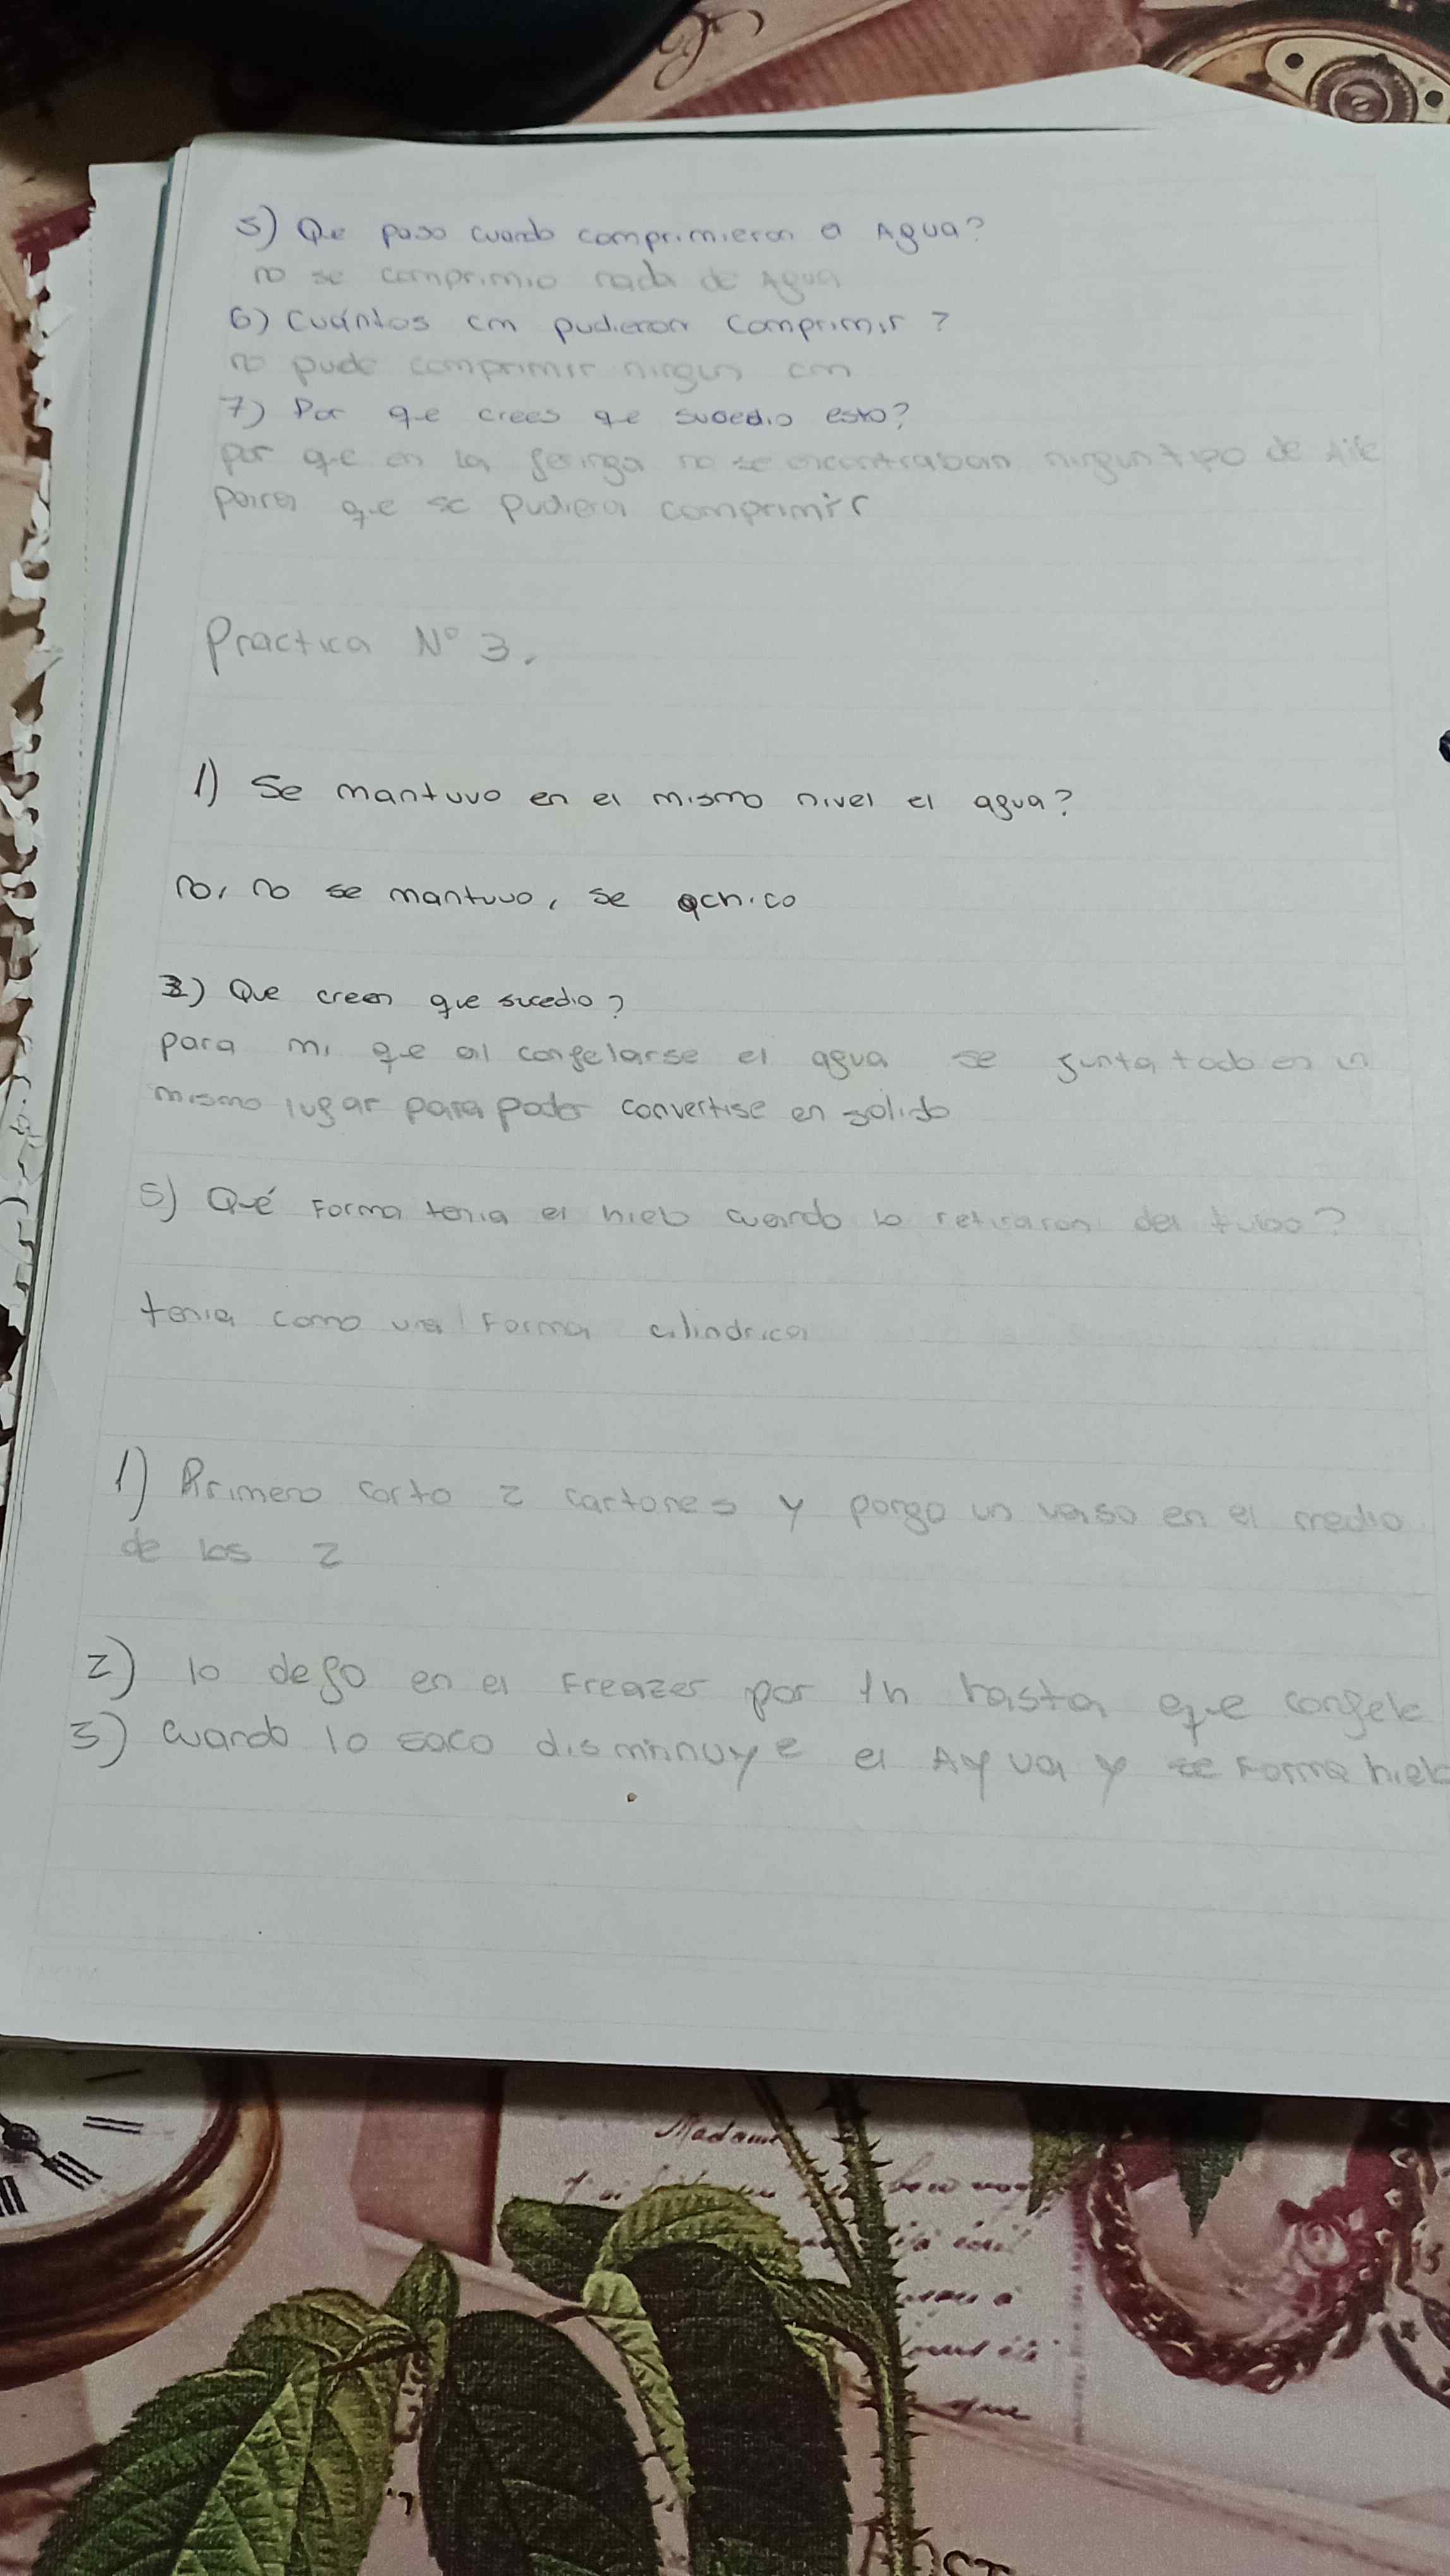 5) Qe paso cuando comprimieron a Agua?
no se comprimio nada de Agua
6) Cuántos cm pudieron comprimir?
no pude comprimir ningun cm
7) Por qe crees qe sucedio esto?
por qe en la geringa no se encontraban ningun tipo de Aire
para qe se pudiera comprimir
Practica N° 3.
1) Se mantuvo en el mismo nivel el agua?
no, no se mantuvo, se achico
3) Que creen que sucedio?
para mi qe al congelarse el agua se junta todo en un
mismo lugar para poder convertise en solido
5) Qué Forma tenia el hielo cuando lo retiraron del tubo?
tenia como una Forma cilindrica
1) Primero corto 2 cartones y pongo un vaso en el medio
de los 2
2) lo dejo en el Freazer por 1h hasta qe congele
3) cuando lo saco disminnuye el Agua y se Forma hielo
Madame